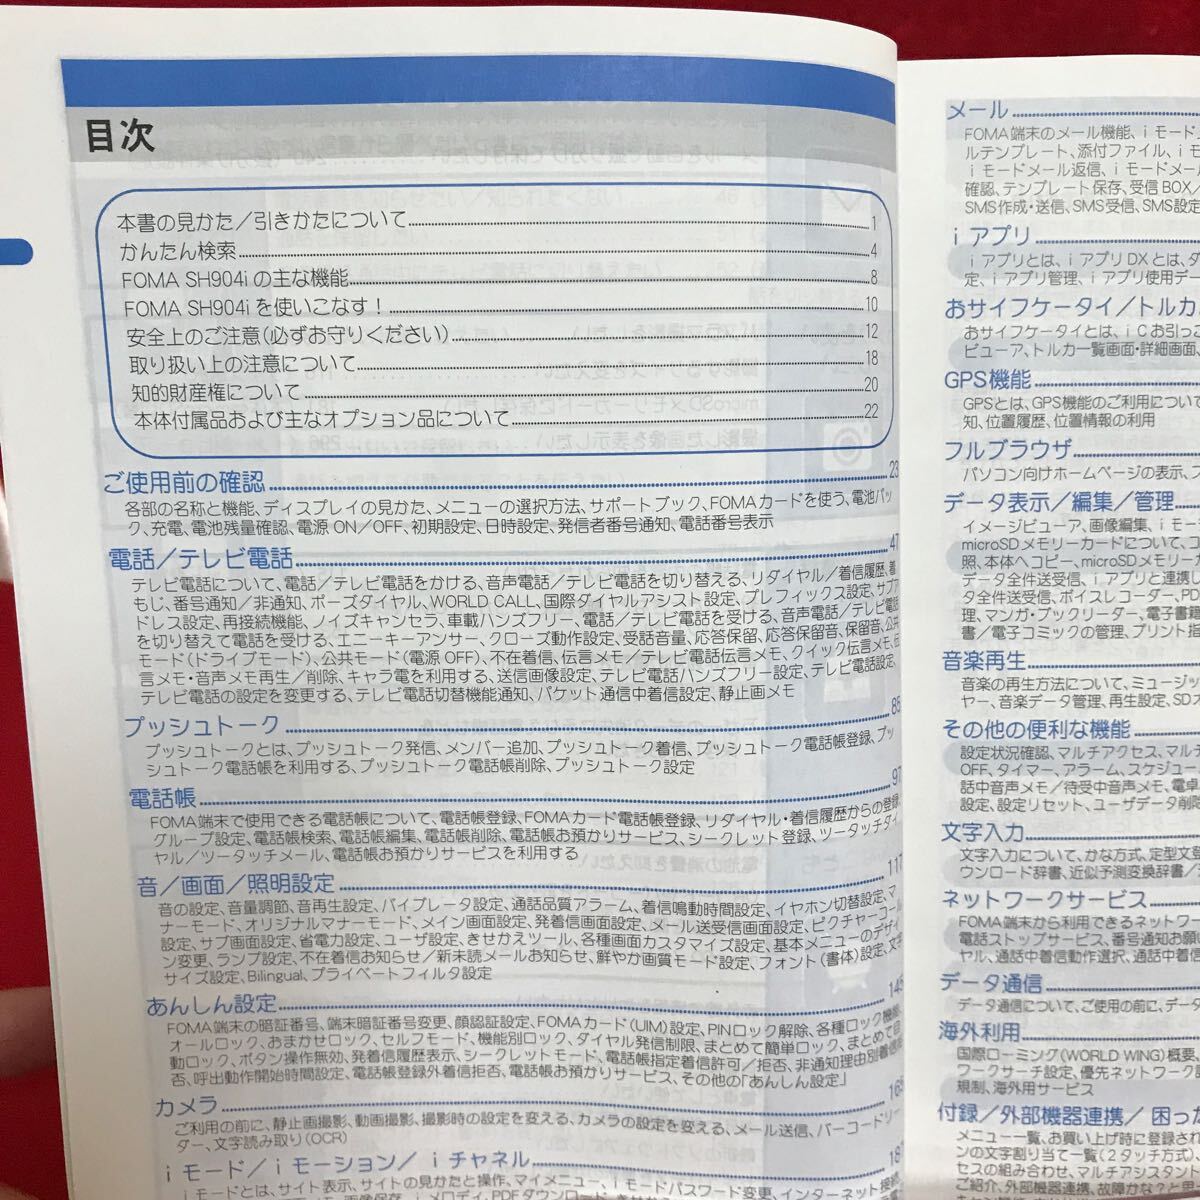 目次
本書の見かた／引きかたについて 1
かんたん検索 4
FOMA SH904iの主な機能 8
FOMA SH904iを使いこなす！ 10
安全上のご注意(必ずお守りください) 12
取り扱い上の注意について 18
知的財産権について 20
本体付属品および主なオプション品について 22
ご使用前の確認 23
各部の名称と機能、ディスプレイの見かた、メニューの選択方法、サポートブック、FOMAカードを使う、電池パッ
ク、充電、電池残量確認、電源 ON／OFF、初期設定、日時設定、発信者番号通知、電話番号表示
電話／テレビ電話 47
テレビ電話について、電話／テレビ電話をかける、音声電話／テレビ電話を切り替える、リダイヤル／着信履歴、着
もじ、番号通知／非通知、ポーズダイヤル、WORLD CALL、国際ダイヤルアシスト設定、プレフィックス設定、サブア
ドレス設定、再接続機能、ノイズキャンセラ、車載ハンズフリー、電話／テレビ電話を受ける、音声電話／テレビ電話
を切り替えて電話を受ける、エニーキーアンサー、クローズ動作設定、受話音量、応答保留、応答保留音、保留音、公共
モード(ドライブモード)、公共モード(電源 OFF)、不在着信、伝言メモ／テレビ電話伝言メモ、クイック伝言メモ、伝
言メモ・音声メモ再生／削除、キャラ電を利用する、送信画像設定、テレビ電話ハンズフリー設定、テレビ電話設定、
テレビ電話の設定を変更する、テレビ電話切替機能通知、パケット通信中着信設定、静止画メモ
プッシュトーク 85
プッシュトークとは、プッシュトーク発信、メンバー追加、プッシュトーク着信、プッシュトーク電話帳登録、プッ
シュトーク電話帳を利用する、プッシュトーク電話帳削除、プッシュトーク設定
電話帳 97
FOMA端末で使用できる電話帳について、電話帳登録、FOMAカード電話帳登録、リダイヤル・着信履歴からの登録、
グループ設定、電話帳検索、電話帳編集、電話帳削除、電話帳お預かりサービス、シークレット登録、ツータッチダイ
ヤル／ツータッチメール、電話帳お預かりサービスを利用する
音／画面／照明設定 117
音の設定、音量調節、音再生設定、バイブレータ設定、通話品質アラーム、着信鳴動時間設定、イヤホン切替設定、マ
ナーモード、オリジナルマナーモード、メイン画面設定、発着信画面設定、メール送受信画面設定、ピクチャーコール
設定、サブ画面設定、省電力設定、ユーザ設定、きせかえツール、各種画面カスタマイズ設定、基本メニューのデザイ
ン変更、ランプ設定、不在着信お知らせ／新未読メールお知らせ、鮮やか画質モード設定、フォント(書体)設定、文字
サイズ設定、Bilingual、プライベートフィルタ設定
あんしん設定 145
FOMA端末の暗証番号、端末暗証番号変更、顔認証設定、FOMAカード(UIM)設定、PINロック解除、各種ロック機能、
オールロック、おまかせロック、セルフモード、機能別ロック、ダイヤル発信制限、まとめて簡単ロック、まとめて自
動ロック、ボタン操作無効、発着信履歴表示、シークレットモード、電話帳指定着信許可／拒否、非通知理由別着信拒
否、呼出動作開始時間設定、電話帳登録外着信拒否、電話帳お預かりサービス、その他の「あんしん設定」
カメラ 165
ご利用の前に、静止画撮影、動画撮影、撮影時の設定を変える、カメラの設定を変える、メール送信、バーコードリー
ダー、文字読み取り(OCR)
ｉモード／ｉモーション／ｉチャネル 187
ｉモードとは、サイト表示、サイトの見かたと操作、マイメニュー、ｉモードパスワード変更、インターネット接続
メール
FOMA端末のメール機能、ｉモード
ルテンプレート、添付ファイル、ｉモ
ｉモードメール返信、ｉモードメー
確認、テンプレート保存、受信BOX
SMS作成・送信、SMS受信、SMS設定
ｉアプリ
ｉアプリとは、ｉアプリDXとは、ダ
定、ｉアプリ管理、ｉアプリ使用デー
おサイフケータイ／トルカ
おサイフケータイとは、ｉCお引っこ
ビューア、トルカ一覧画面・詳細画面、
GPS機能
GPSとは、GPS機能のご利用について
知、位置履歴、位置情報の利用
フルブラウザ
パソコン向けホームページの表示、フ
データ表示／編集／管理
イメージビューア、画像編集、ｉモー
microSDメモリーカードについて、コ
照、本体へコピー、microSDメモリー
データ全件送受信、ｉアプリと連携し
タ全件送受信、ボイスレコーダー、PD
理、マンガ・ブックリーダー、電子書籍
書／電子コミックの管理、プリント指
音楽再生
音楽の再生方法について、ミュージッ
ヤー、音楽データ管理、再生設定、SD
その他の便利な機能
設定状況確認、マルチアクセス、マルチ
OFF、タイマー、アラーム、スケジュー
話中音声メモ／待受中音声メモ、電卓
設定、設定リセット、ユーザデータ削除
文字入力
文字入力について、かな方式、定型文登
ウンロード辞書、近似予測変換辞書／
ネットワークサービス
FOMA端末から利用できるネットワー
電話ストップサービス、番号通知お願い
ヤル、通話中着信動作選択、通話中着信
データ通信
データ通信について、ご使用の前に、デー
海外利用
国際ローミング(WORLD WING)概要、
ワークサーチ設定、優先ネットワーク設
規制、海外用サービス
付録／外部機器連携／困っ
メニュー一覧、お買い上げ時に登録され
ンの文字割り当て一覧(2タッチ方式)、
セスの組み合わせ、マルチアシスタント
ご紹介、外部機器連携、故障かな？と思